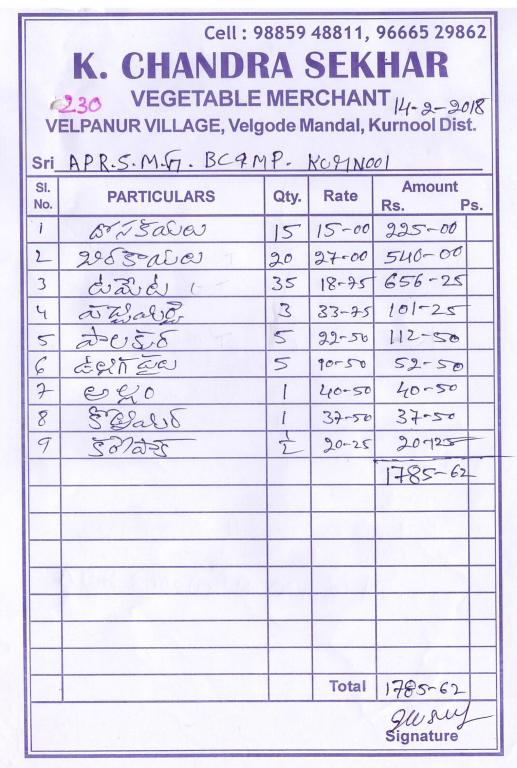 Cell : 98859 48811, 96665 29862
K. CHANDRA SEKHAR
230 VEGETABLE MERCHANT 14-2-2018
VELPANUR VILLAGE, Velgode Mandal, Kurnool Dist.
Sri APR.S.M.G. BC&MP. Kurnool
Sl. No. PARTICULARS Qty. Rate Amount Rs. Ps.
1 దోసకాయలు 15 15-00 225-00
2 బీరకాయలు 20 27-00 540-00
3 టమేట 35 18-75 656-25
4 పచ్చిమిర్చి 3 33-75 101-25
5 పాలకూర 5 22-50 112-50
6 ఉల్లిగడ్డలు 5 10-50 52-50
7 అల్లం 1 40-50 40-50
8 కొత్తిమీర 1 37-50 37-50
9 కరేపాక్ ½ 20-25
1785-62
Total 1785-62
Signature